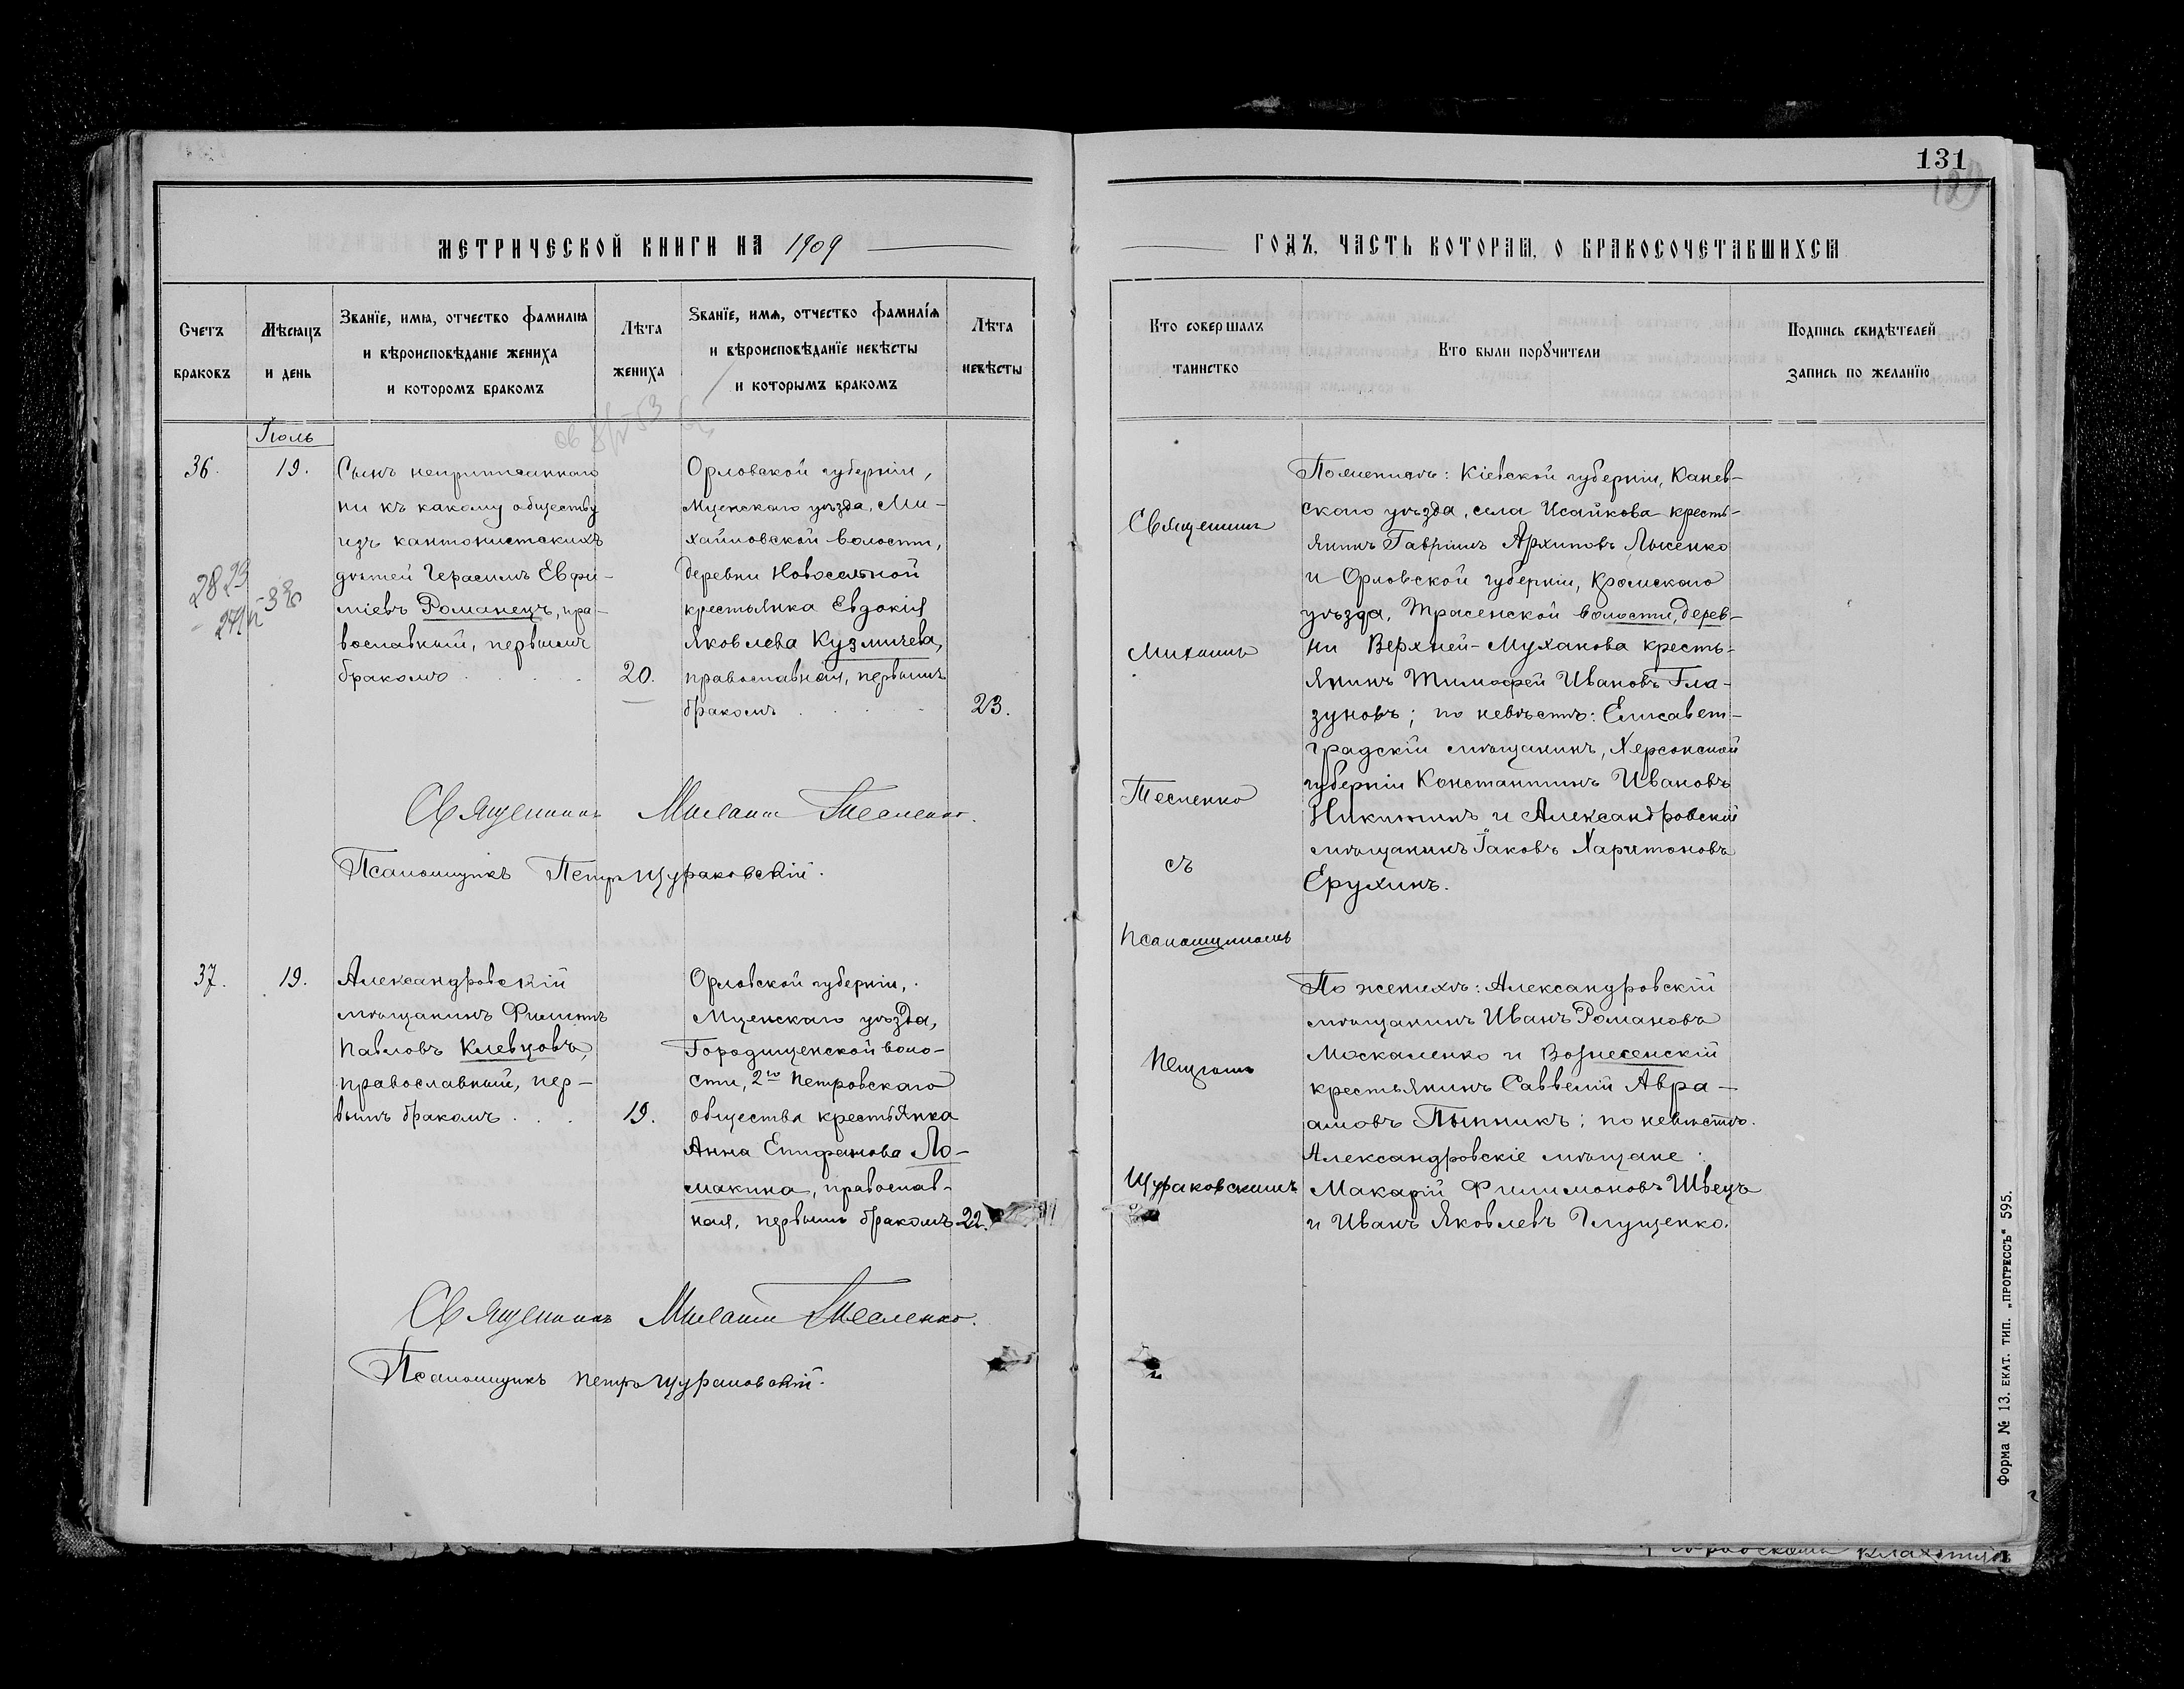 131
МЕТРИЧЕСКОЙ КНИГИ НА 1909
ГОДЪ, ЧАСТЬ КОТОРАЯ, О БРАКОСОЧЕТАВШИХСЯ
Счетъ
браковъ
Мѣсяцъ
и день
Званїе, имя, отчество фамилїя
и вѣроисповѣданїе жениха
и которомъ бракомъ
Лѣта
жениха
Званїе, имя, отчество фамилїя
и вѣроисповѣданїе невѣсты
и которымъ бракомъ
Лѣта
невѣсты
Кто совершалъ
таинство
Кто были порꙋчители
Подпись свидѣтелей
запись по желанїю
Іюль
36.
19.
Сынъ неприписаннаго
ни къ какому обществу
изъ кантонистскихъ
дѣтей Герасимъ Евфи-
міевъ Романецъ, пра-
вославный, первымъ
бракомъ
20.
Орловской губерніи,
Мценскаго уѣзда, Ми-
хайловской волости,
деревни Новосельной
крестьянка Евдокія
Яковлева Кузмичева,
православная, первымъ
бракомъ
23.
Священникъ
Михаилъ
Тесленко
съ
псаломщикомъ
Петромъ
Щураковскимъ
По женихѣ: Кіевской губерніи, Канев-
скаго уѣзда, села Исайкова кресть-
янинъ Гавріилъ Архиповъ Лысенко
и Орловской губерніи, Кромскаго
уѣзда, волости, дерев-
ни Верхней-Муханова кресть-
янинъ Тимофей Ивановъ Гла-
зуновъ; по невѣстѣ: Елисавет-
градскій мѣщанинъ, Херсонской
губерніи Константинъ Ивановъ
Никитинъ и Александровскій
мѣщанинъ Іаковъ Харитоновъ
Ерухинъ.
Священникъ Михаилъ Тесленко.
Псаломщикъ Петръ Щураковскій.
37.
19.
Александровскій
мѣщанинъ Филиппъ
Павловъ Клевцовъ,
православный, пер-
вымъ бракомъ
19.
Орловской губерніи,
Мценскаго уѣзда,
Городищенской воло-
сти, 2го Петровскаго
общества крестьянка
Анна Епифанова Ло-
макина, православ-
ная, первымъ бракомъ
22.
По женихѣ: Александровскій
мѣщанинъ Иванъ Романовъ
Москаленко и Вознесенскій
крестьянинъ Савелій Авра-
амовъ Пыпникъ; по невѣстѣ:
Александровскіе мѣщане:
Макарій Филимоновъ Швецъ
и Иванъ Яковлевъ Глущенко.
Священникъ Михаилъ Тесленко.
Псаломщикъ Петръ Щураковскій.
Форма № 13. ЕКАТ. ТИП. „ПРОГРЕССЪ“ 595.